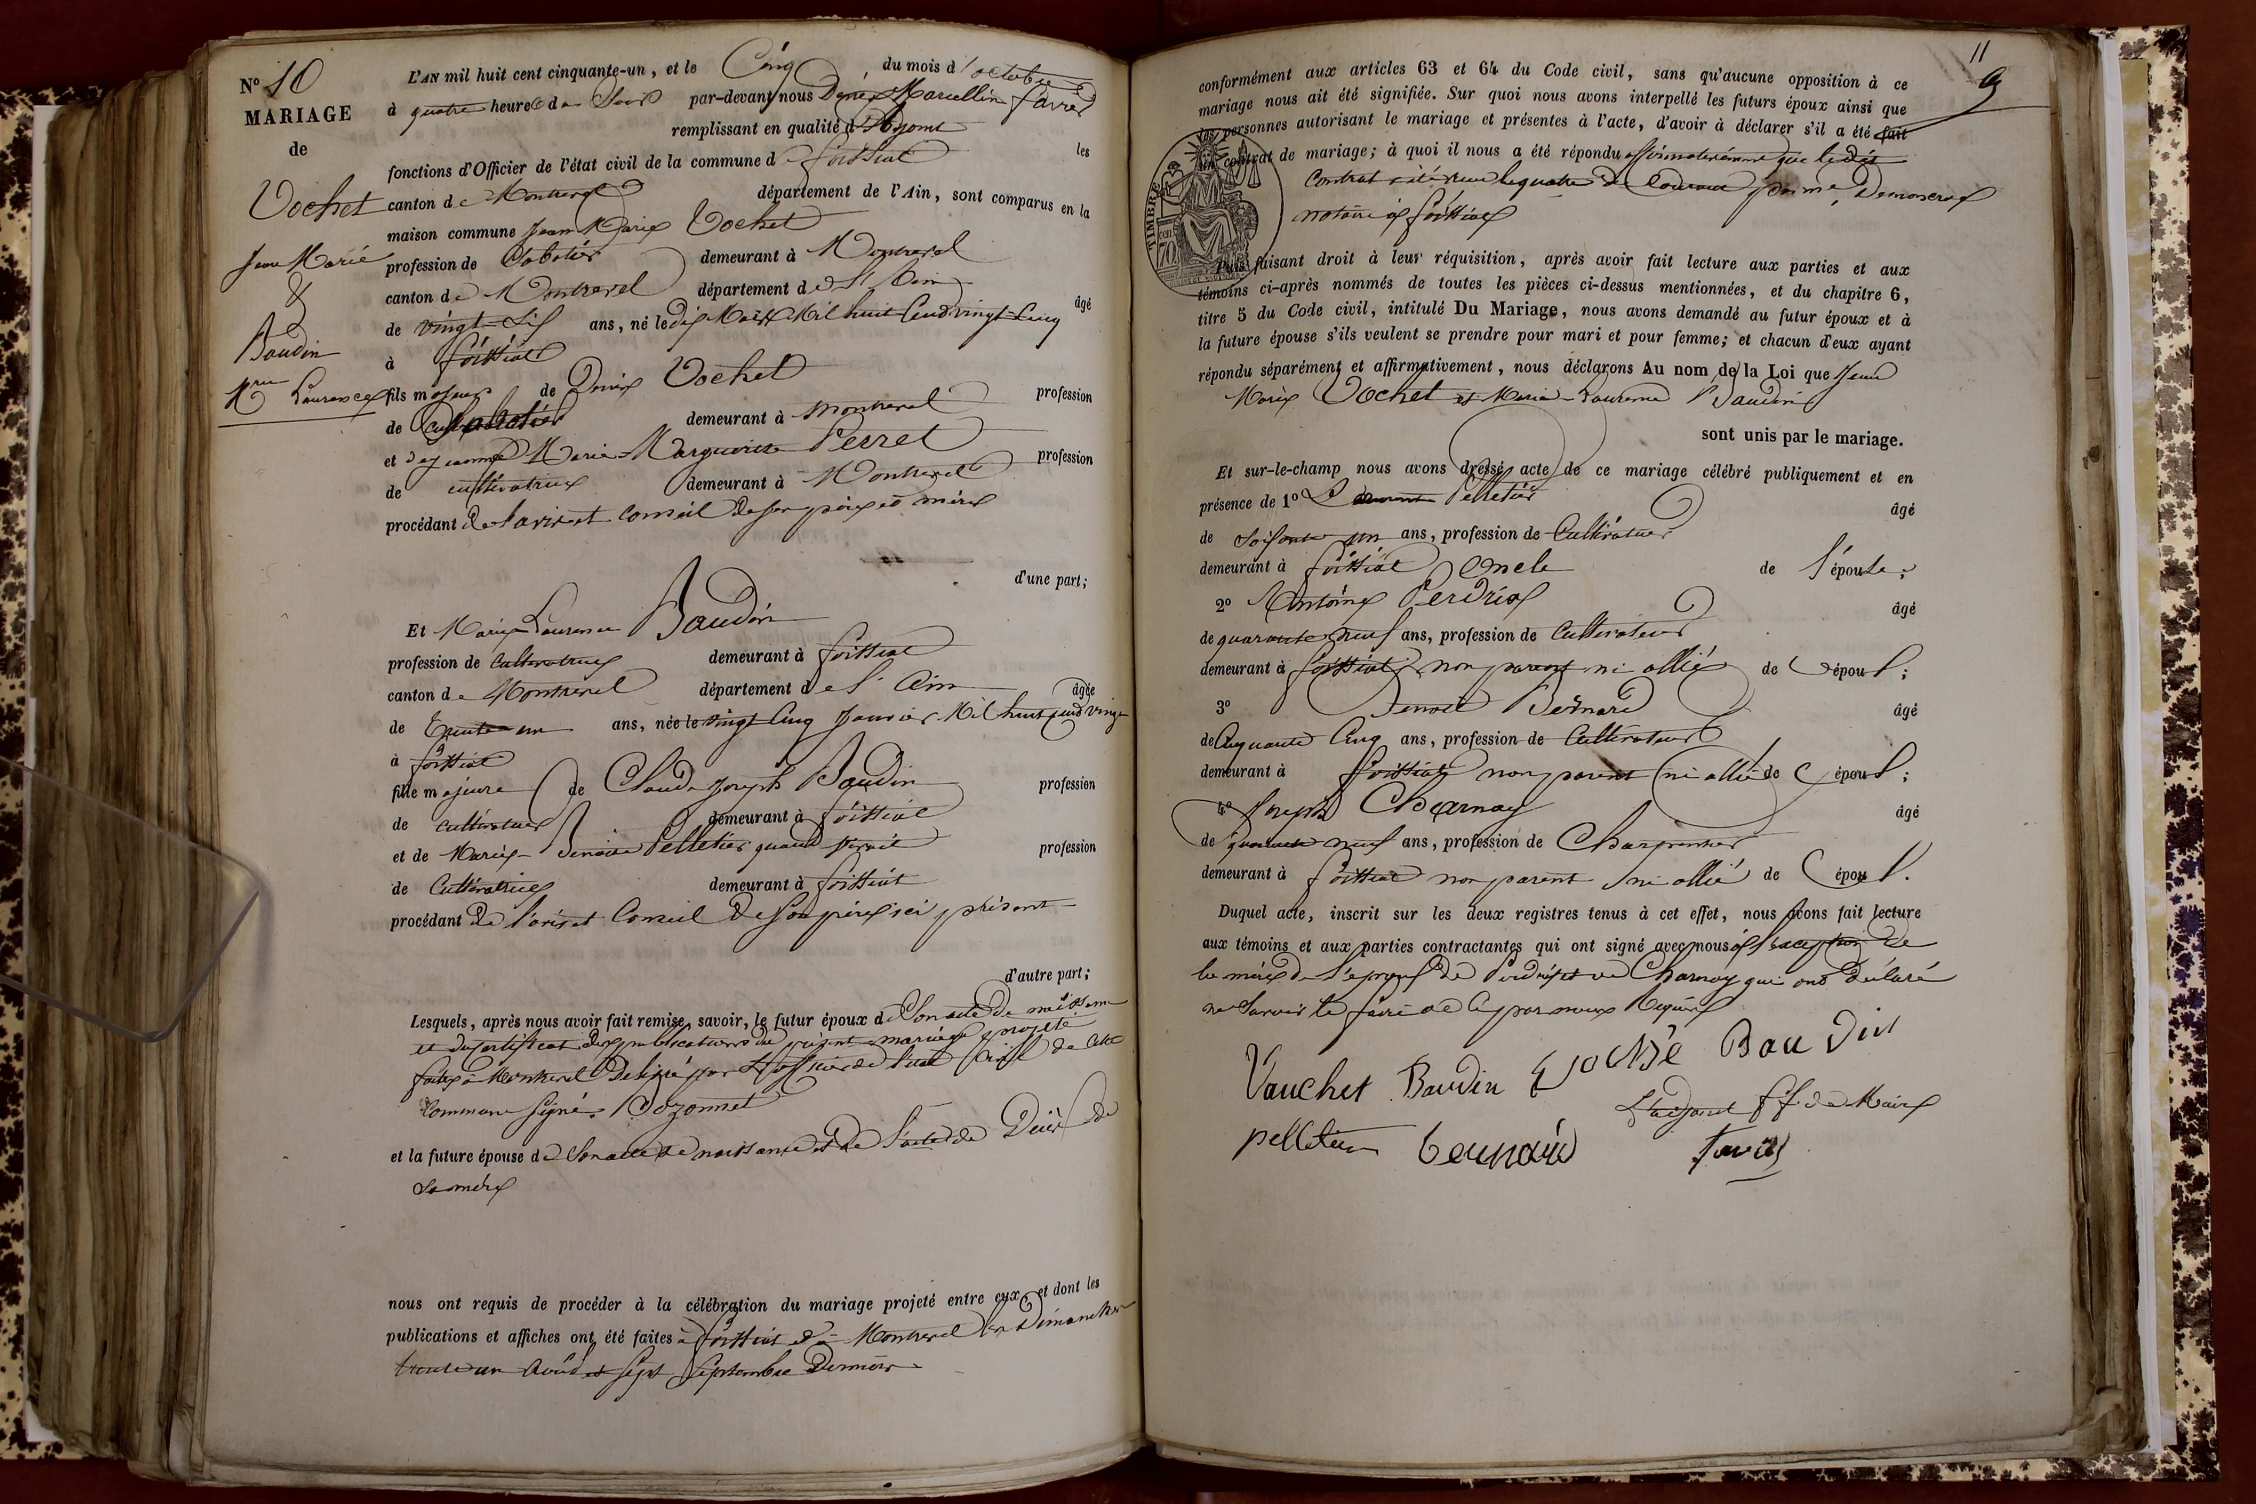 N° 10
MARIAGE
de
Vochet
Jean Marie
&
Baudin
Mie Laurence
L'AN mil huit cent cinquante-un, et le Cinq du mois d'octobre
à quatre heures du Soir par-devant nous Marcellin favre
remplissant en qualité d'adjoint les
fonctions d'Officier de l'état civil de la commune de foissiat
canton de Montrevel département de l'Ain, sont comparus en la
maison commune Jean Marie Vochet
profession de Sabotier demeurant à Montrevel
canton de Montrevel département de l'Ain âgé
de vingt Six ans, né le dix Mars Mil huit Cent vingt Cinq
à foissiat
fils majeur de Denis Vochet profession
de demeurant à Montrevel
et de Marie Marguerite Perret profession
de cultivatrice demeurant à Montrevel
procédant de l'avis et conseil de son père et mère
d'une part;
Et Marie Laurence Baudin
profession de cultivatrice demeurant à foissiat
canton de Montrevel département de l'Ain âgée
de Trente un ans, née le vingt Cinq Janvier Mil huit cent vingt
à foissiat
fille majeure de Claude Joseph Baudin profession
de cultivateur demeurant à foissiat
et de Marie Benoite Pelletier quand vivait profession
de Cultivatrice demeurant à foissiat
procédant de l'avis et Conseil de son père ici présent
d'autre part;
Lesquels, après nous avoir fait remise, savoir, le futur époux de Son acte de naissance
et du certificat des publications du présent mariage projeté
faites à Montrevel Délivré par l'officier de l'état Civil de cette
Commune Signé Bozonnet
et la future épouse de Son acte de naissance et de l'acte de Décès de
Sa mère
nous ont requis de procéder à la célébration du mariage projeté entre eux, et dont les
publications et affiches ont été faites à foissiat et à Montrevel les Dimanches
trente un Août et sept Septembre Dernier
11
9
conformément aux articles 63 et 64 du Code civil, sans qu'aucune opposition à ce
mariage nous ait été signifiée. Sur quoi nous avons interpellé les futurs époux ainsi que
les personnes autorisant le mariage et présentes à l'acte, d'avoir à déclarer s'il a été fait
un contrat de mariage; à quoi il nous a été répondu affirmativement que ledit
Contrat a été reçu le quatre du Courant par me Demoncroix
notaire à foissiat
TIMBRE
70
Puis faisant droit à leur réquisition, après avoir fait lecture aux parties et aux
témoins ci-après nommés de toutes les pièces ci-dessus mentionnées, et du chapitre 6,
titre 5 du Code civil, intitulé Du Mariage, nous avons demandé au futur époux et à
la future épouse s'ils veulent se prendre pour mari et pour femme; et chacun d'eux ayant
répondu séparément et affirmativement, nous déclarons Au nom de la Loi que Jean
Marie Vochet et Marie Laurence Baudin
sont unis par le mariage.
Et sur-le-champ nous avons dressé acte de ce mariage célébré publiquement et en
présence de 1° Pelletier âgé
de Soixante un ans, profession de Cultivateur
demeurant à foissiat Oncle de l'épouse;
2° Antoine Perdrix âgé
de quarante neuf ans, profession de Cultivateur
demeurant à foissiat non parent ni allié de époux;
3° Benoit Bernard âgé
de Cinquante Cinq ans, profession de Cultivateur
demeurant à foissiat non parent ni allié de époux;
4° Joseph Charnay âgé
de quarante neuf ans, profession de Charpentier
demeurant à foissiat non parent ni allié de époux.
Duquel acte, inscrit sur les deux registres tenus à cet effet, nous avons fait lecture
aux témoins et aux parties contractantes qui ont signé avec nous à l'exception de
la mère de l'époux de Perdrix et de Charnay qui ont déclaré
ne Savoir le faire de ce par nous Requis
Vauchet Baudin Vochdé Baudin
L'adjoint f.f. de Maire
pelletier bernard favre